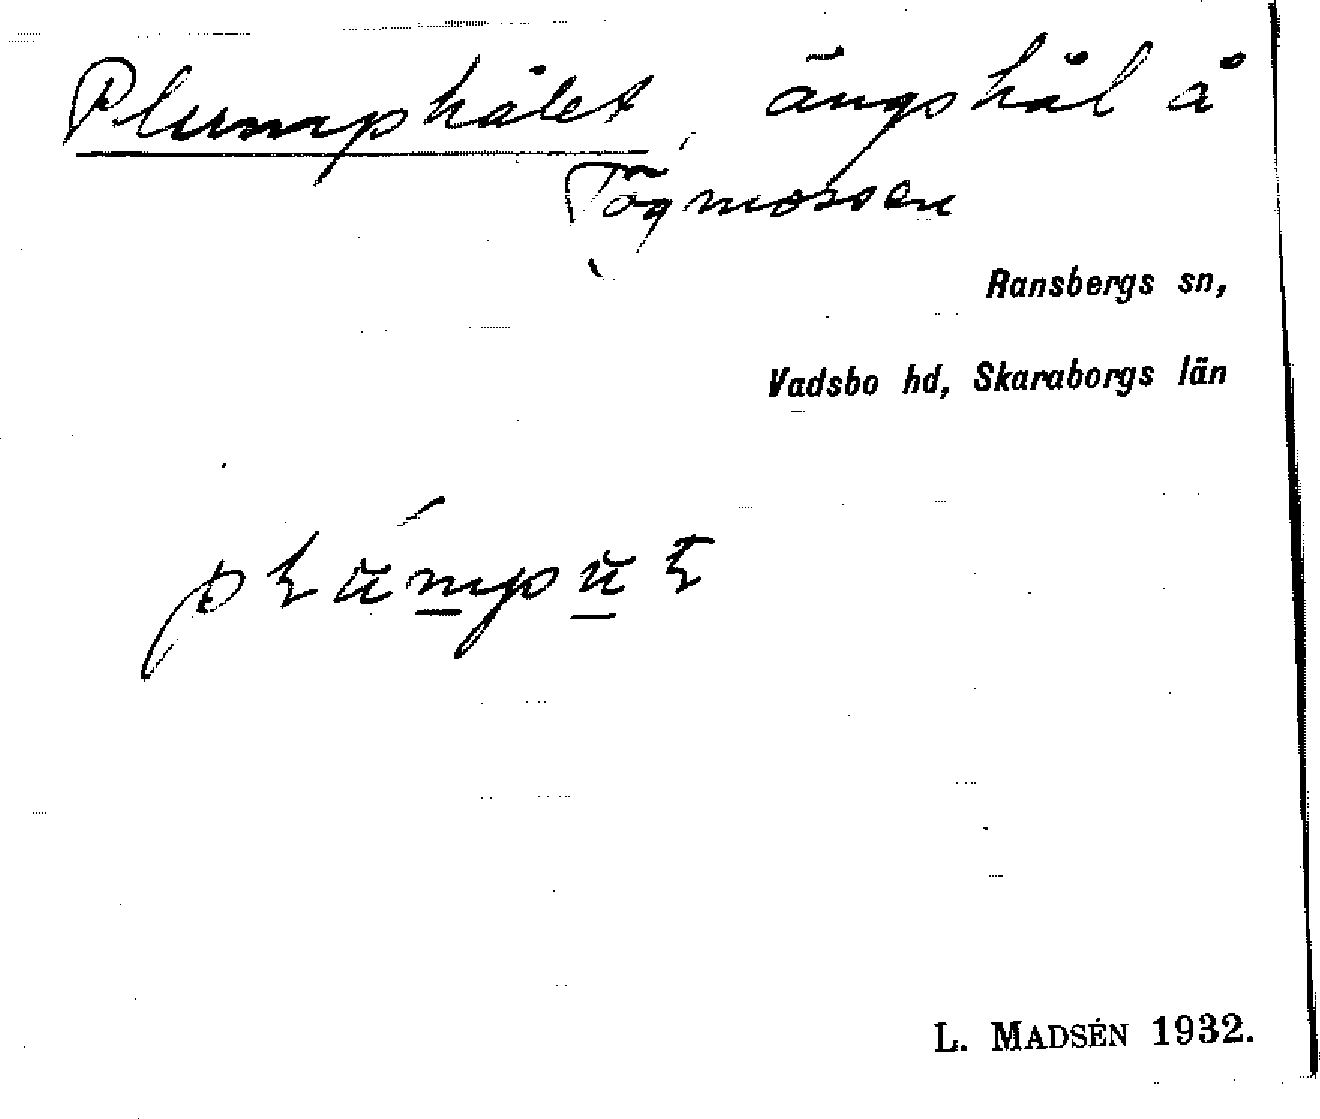 Plumphålet, ängshål å
Tögmossen
Ransbergs sn,
Vadsbo hd, Skaraborgs län
L. MADSÉN 1932.